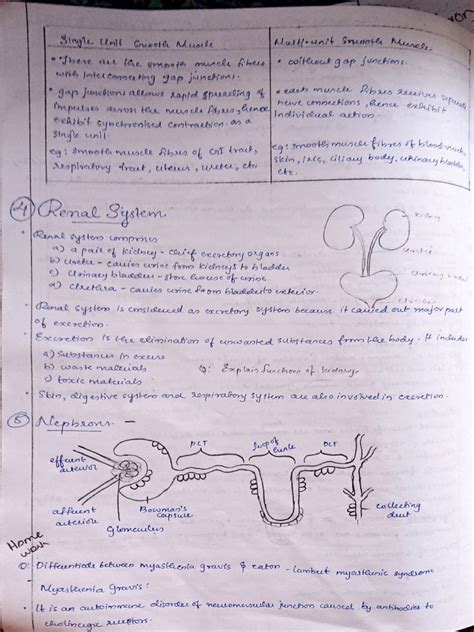 Single Unit Smooth Muscle
• These are the smooth muscle fibres
with interconnecting gap junctions.
• gap junctions allows rapid spreading of
impulses across the muscle fibres, hence
exhibit synchronised contraction as a
single unit.
eg: smooth muscle fibres of GI tract,
respiratory tract, uterus, ureter, etc
Multi-unit Smooth Muscle
• without gap junctions.
• each muscle fibres receives separate
nerve connections, hence exhibit
individual action.
eg: smooth muscle fibres of blood
skin, iris, ciliary body, urinary bladder
etc.
④ Renal System
• Renal system comprises
a) a pair of kidney - chief excretory organs
b) ureter - carries urine from kidneys to bladder
c) Urinary bladder - store house of urine
d) Urethra - carries urine from bladder to exterior.
kidney
• Renal system is considered as excretory system because it carried out major part
of excretion.
• Excretion is the elimination of unwanted substances from the body. It includes
a) Substances in excess
b) waste materials
c) toxic materials
Q: Explain functions of kidney.
• Skin, digestive system and respiratory system are also involved in excretion.
⑤ Nephrons -
PCT
Loop of
Henle
DCT
efferent
arterior
afferent
arterior
Bowman's
capsule
Glomerulus
collecting
duct
Home
work
Q: Differentiate between myasthenia gravis & eaton - lambert myasthenic syndrome
- Myasthenia Gravis:
• It is an autoimmune disorder of neuromuscular junction caused by antibodies to
cholinergic receptors.